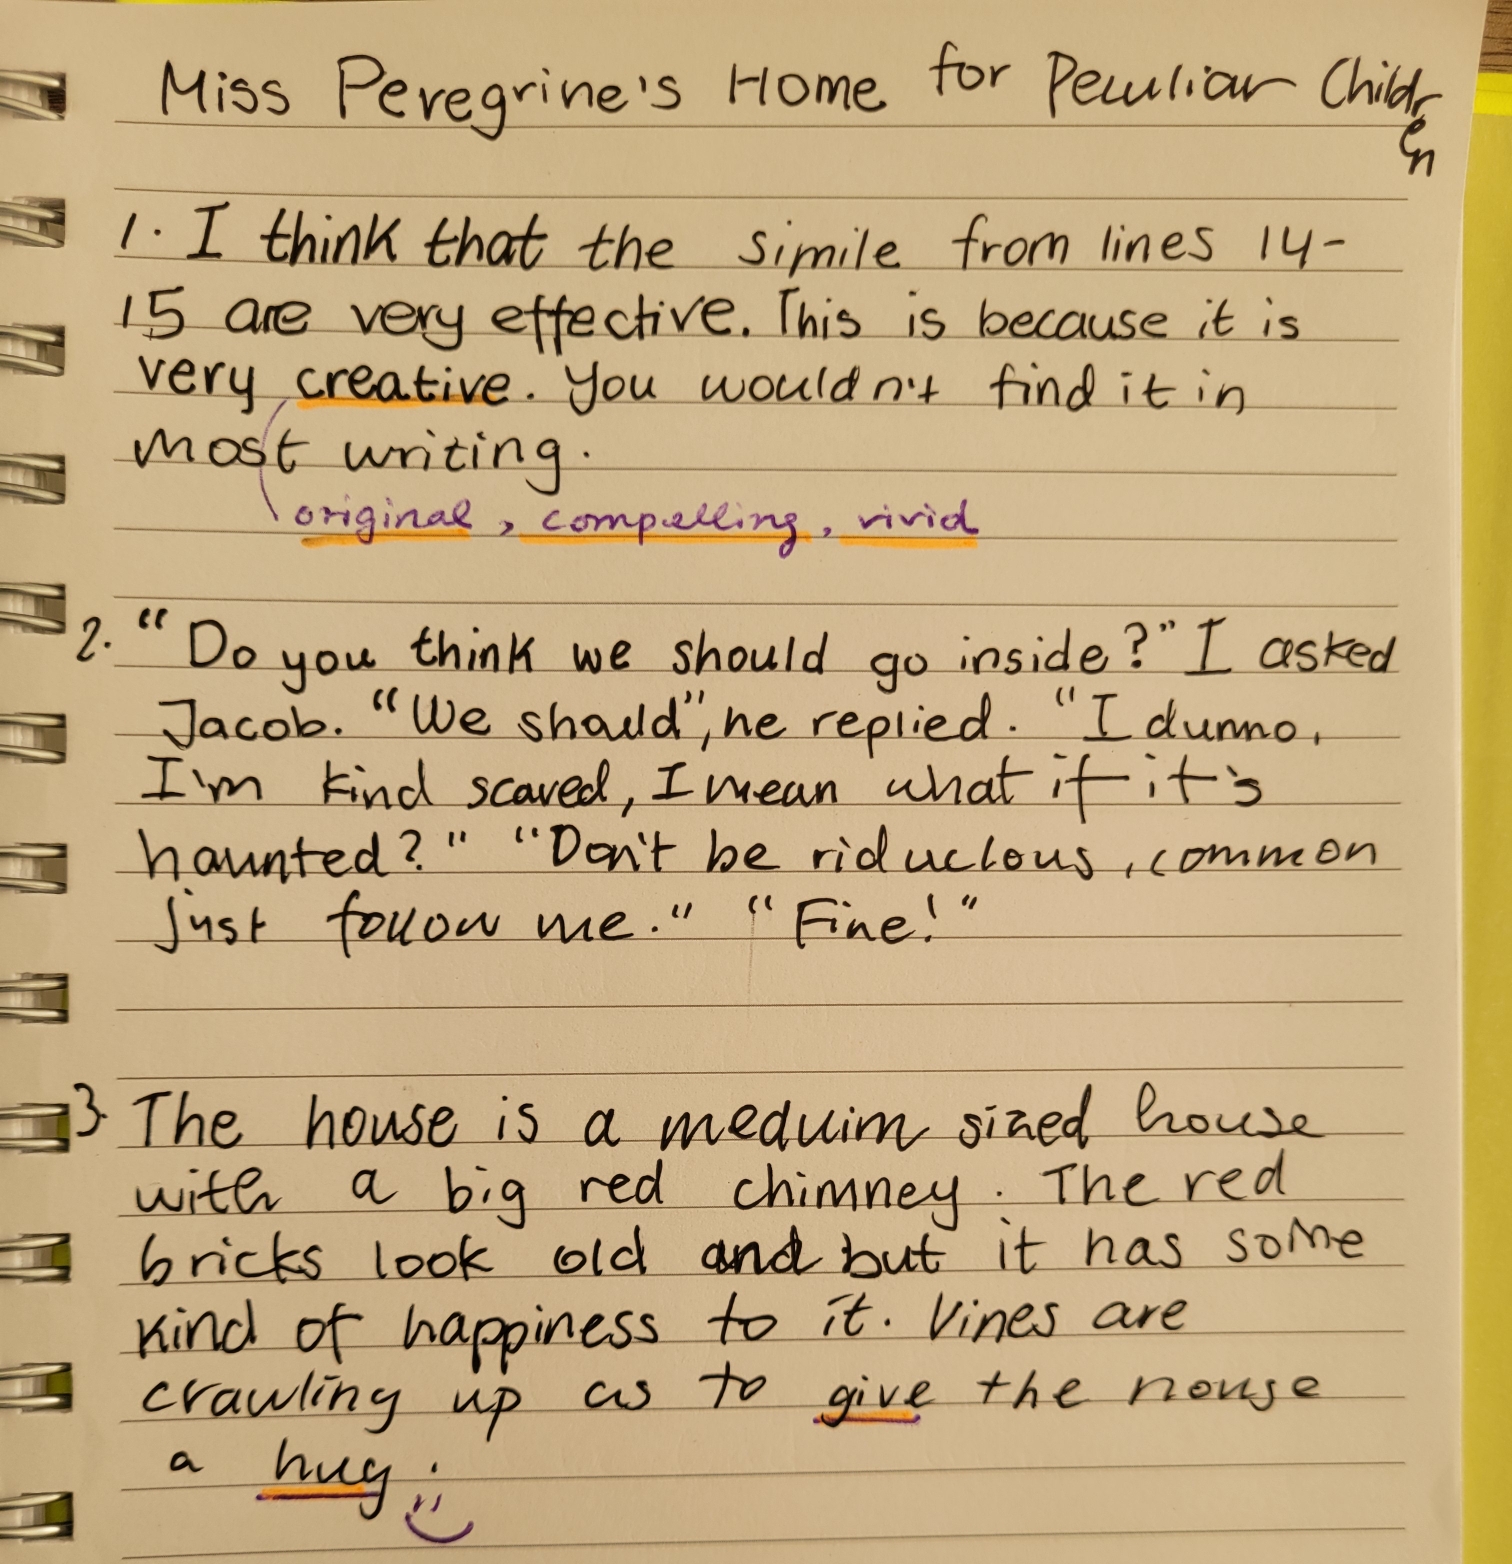 Miss Peregrine's Home for Peculiar Childr
en
1. I think that the simile from lines 14-
15 are very effective. This is because it is
very creative. You wouldn't find it in
most writing.
original, compelling, vivid
2. "Do you think we should go inside?" I asked
Jacob. "We should", he replied. "I dunno,
I'm kind scared, I mean what if it's
haunted?" "Don't be riduclous, common
just follow me." "Fine!"
3. The house is a meduim sized house
with a big red chimney. The red
bricks look old and but it has some
kind of happiness to it. Vines are
crawling up as to give the house
a hug.